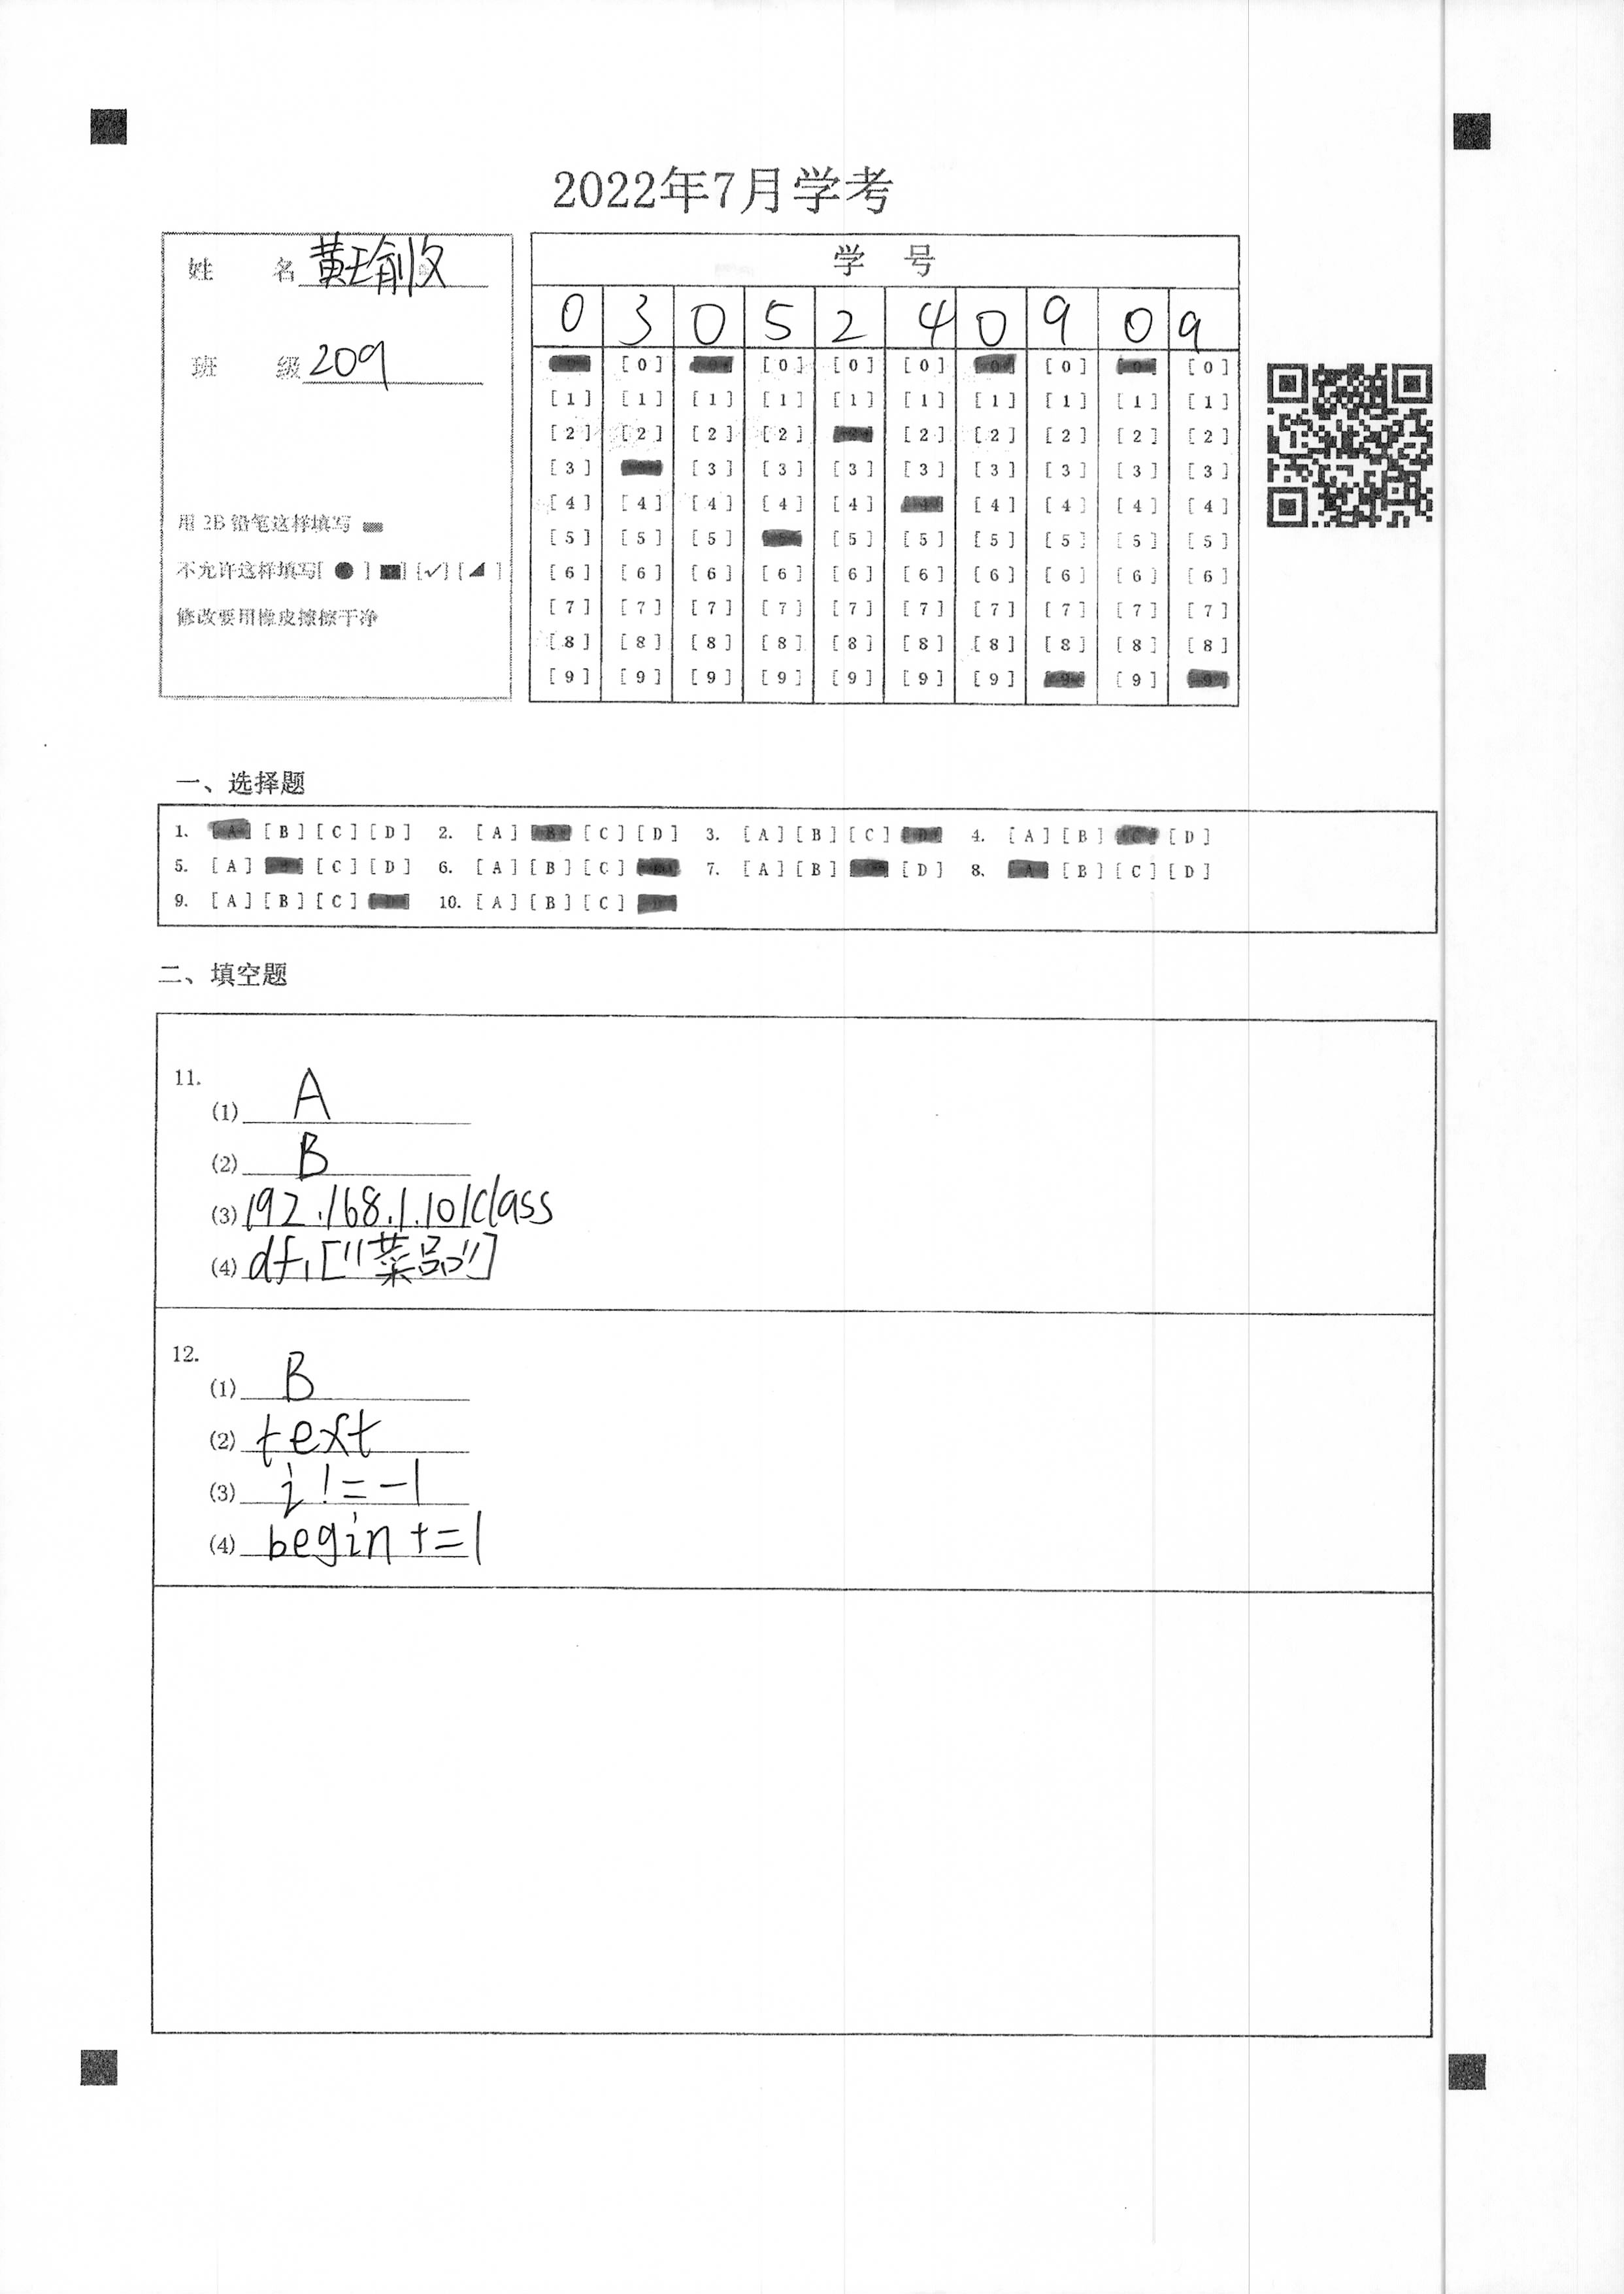 2022年7月学考
姓 名 黄瑜
班 级 209
用 2B 铅笔这样填写
不允许这样填写[ ● ] [■] [✓] [◢ ]
修改要用橡皮擦擦干净
学 号
0 3 0 5 2 4 0 9 0 9
[0] [0] [0] [0] [0] [0]
[1] [1] [1] [1] [1] [1] [1] [1] [1] [1]
[2] [2] [2] [2] [2] [2] [2] [2] [2]
[3] [3] [3] [3] [3] [3] [3] [3] [3]
[4] [4] [4] [4] [4] [4] [4] [4] [4]
[5] [5] [5] [5] [5] [5] [5] [5] [5]
[6] [6] [6] [6] [6] [6] [6] [6] [6] [6]
[7] [7] [7] [7] [7] [7] [7] [7] [7] [7]
[8] [8] [8] [8] [8] [8] [8] [8] [8] [8]
[9] [9] [9] [9] [9] [9] [9] [9] [9] [9]
一、选择题
1. [A] [B] [C] [D] 2. [A] [B] [C] [D] 3. [A] [B] [C] [D] 4. [A] [B] [C] [D]
5. [A] [C] [D] 6. [A] [B] [C] 7. [A] [B] [D] 8. [A] [B] [C] [D]
9. [A] [B] [C] 10. [A] [B] [C] [D]
二、填空题
11.
(1) A
(2) B
(3) 192.168.1.10/class
(4) df1["菜品"]
12.
(1) B
(2) text
(3) i != -1
(4) begin += 1